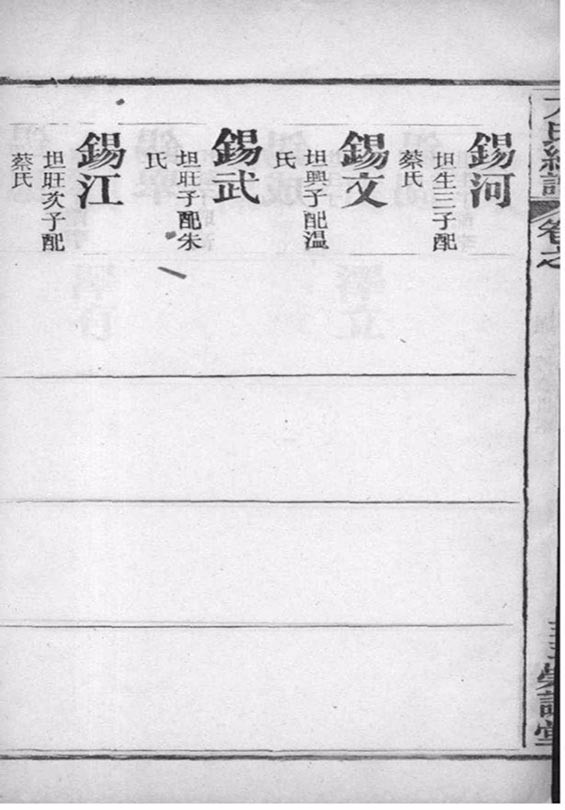 錫河
坦生三子配
蔡氏
錫文
坦興子配溫
氏
錫武
坦旺子配朱
氏
錫江
坦旺次子配
蔡氏